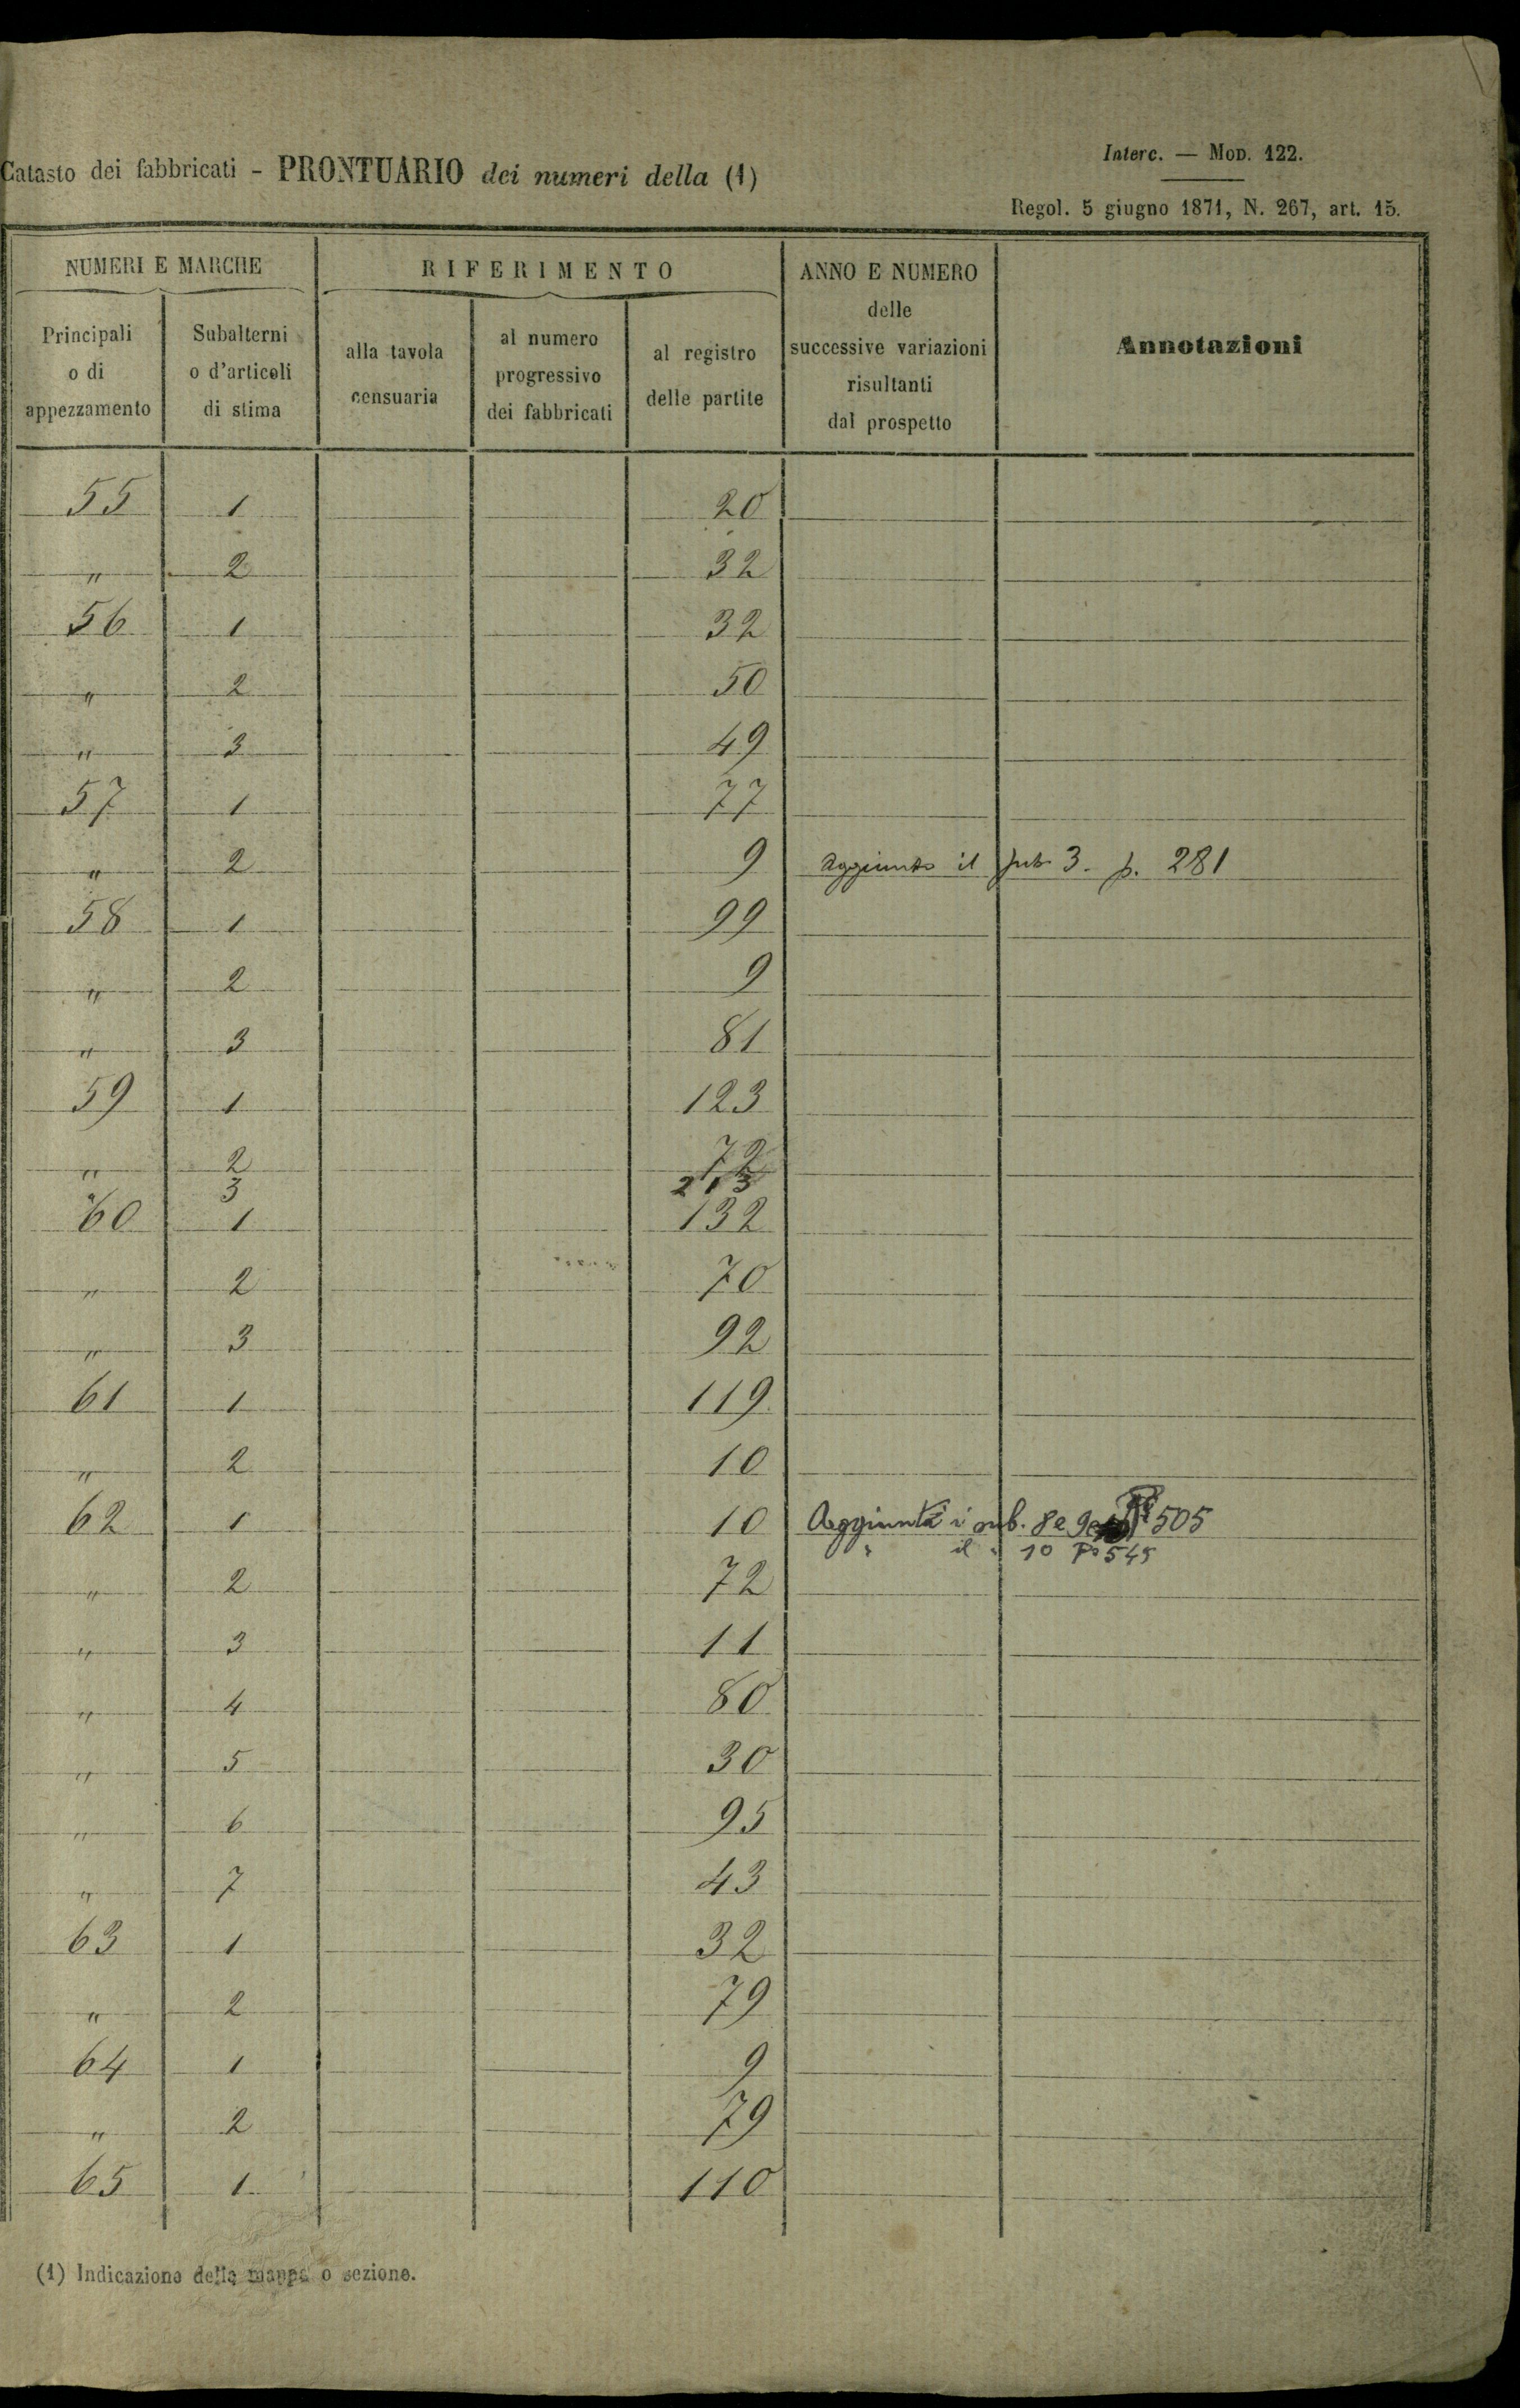 Catasto dei fabbricati - PRONTUARIO dei numeri della (1)
Interc. — MOD. 122.
Regol. 5 giugno 1871, N. 267, art. 15.
NUMERI E MARCHE
RIFERIMENTO
ANNO E NUMERO
delle
successive variazioni
risultanti
dal prospetto
Annotazioni
Principali
o di
appezzamento
Subalterni
o d'articoli
di stima
alla tavola
censuaria
al numero
progressivo
dei fabbricati
al registro
delle partite
55 1 20
" 2 32
56 1 32
" 2 50
" 3 49
57 1 77
" 2 9 aggiunto il sub 3. p. 281
58 1 99
" 2 9
" 3 81
59 1 123
" 2 72
" 3 213
60 1 132
" 2 70
" 3 92
61 1 119
" 2 10
62 1 10 Aggiunti i sub. 8 e 9 505
" il " 10 Pa 545
" 2 72
" 3 11
" 4 80
" 5 30
" 6 95
" 7 43
63 1 32
" 2 79
64 1 9
" 2 79
65 1 110
(1) Indicazione della mappa o sezione.